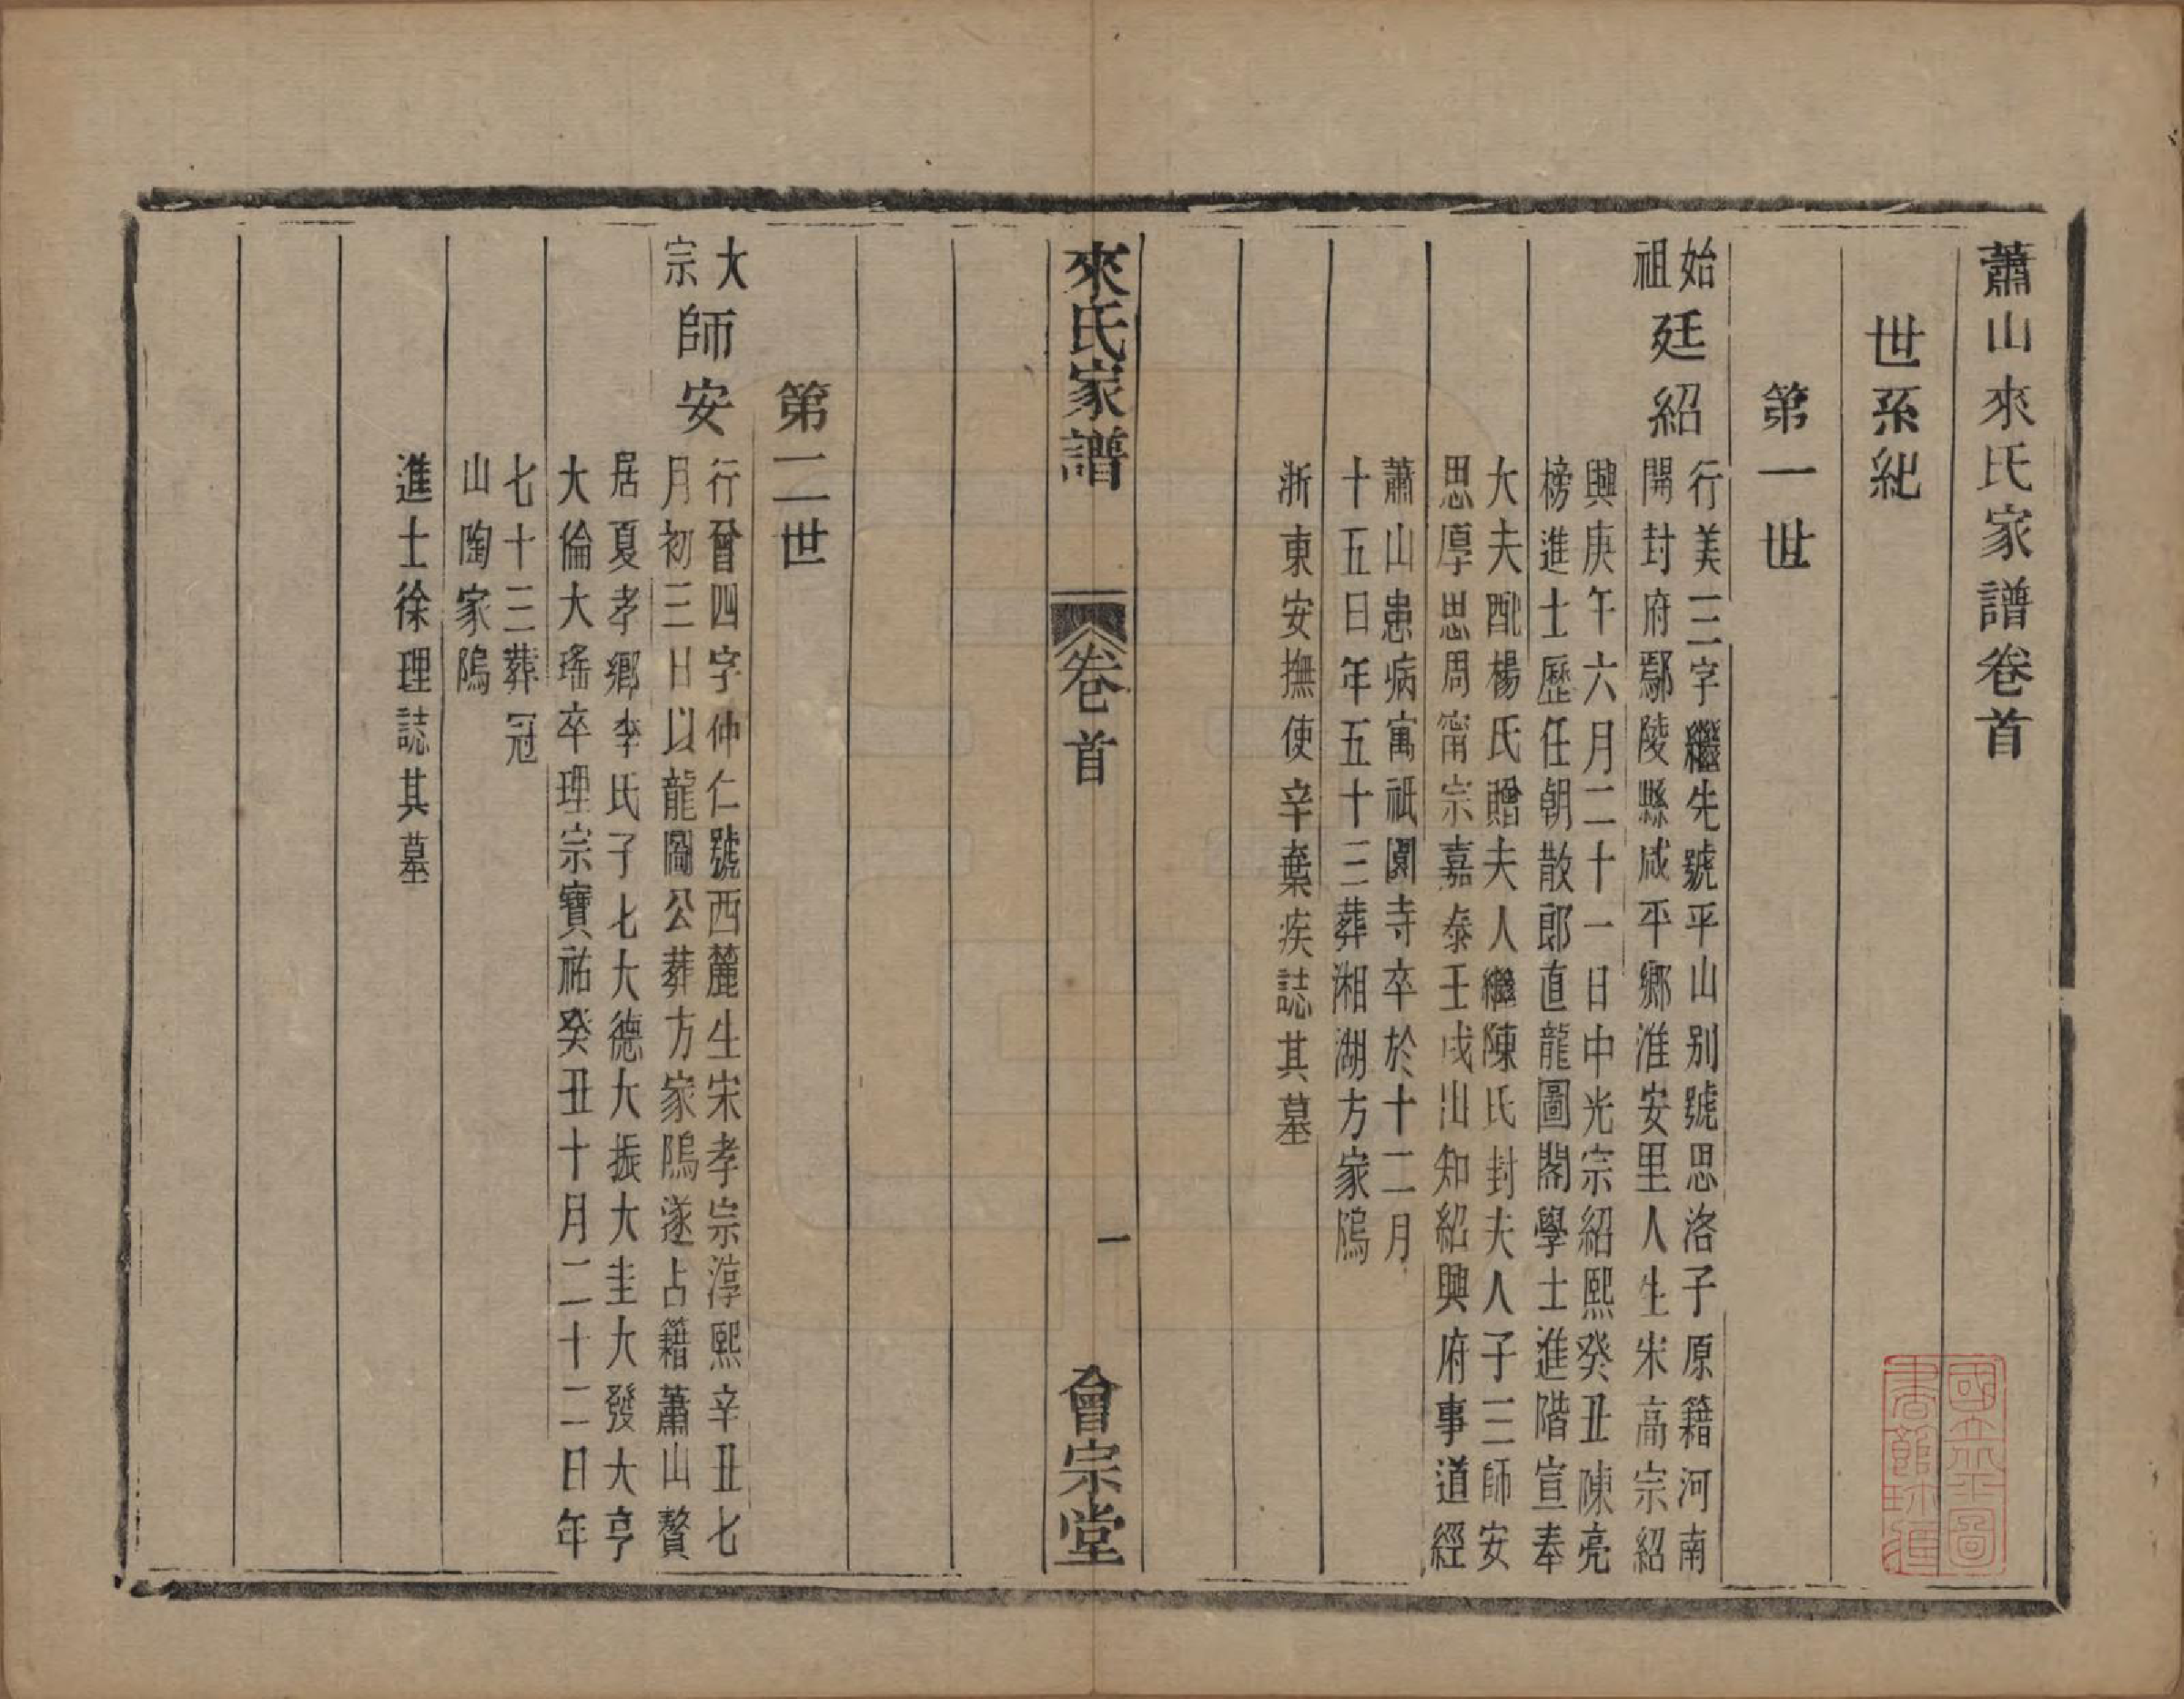 蕭山來氏家譜卷首
世系紀
第一世
始祖廷紹
行美三字繼先號平山別號思洛子原籍河南
開封府鄢陵縣咸平鄉淮安里人生宋高宗紹
興庚午六月二十一日中光宗紹熙癸丑陳亮
榜進士歷任朝散郎直龍圖閣學士進階宣奉
大夫配楊氏贈夫人繼陳氏封夫人子三師安
思厚思周甯宗嘉泰壬戌出知紹興府事道經
蕭山患病寓祇園寺卒於十二月
十五日年五十三葬湘湖方家隖
浙東安撫使辛棄疾誌其墓
來氏家譜
卷首
一
會宗堂
第二世
大宗師安
行晉四字仲仁號西麓生宋孝宗淳熙辛丑七
月初三日以龍圖公葬方家隖遂占籍蕭山贅
居夏孝鄉李氏子七大德大振大圭大發大亨
大倫大瑤卒理宗寶祐癸丑十月二十二日年
七十三葬冠
山陶家隖
進士徐理誌其墓
國立北平圖
書館珍藏